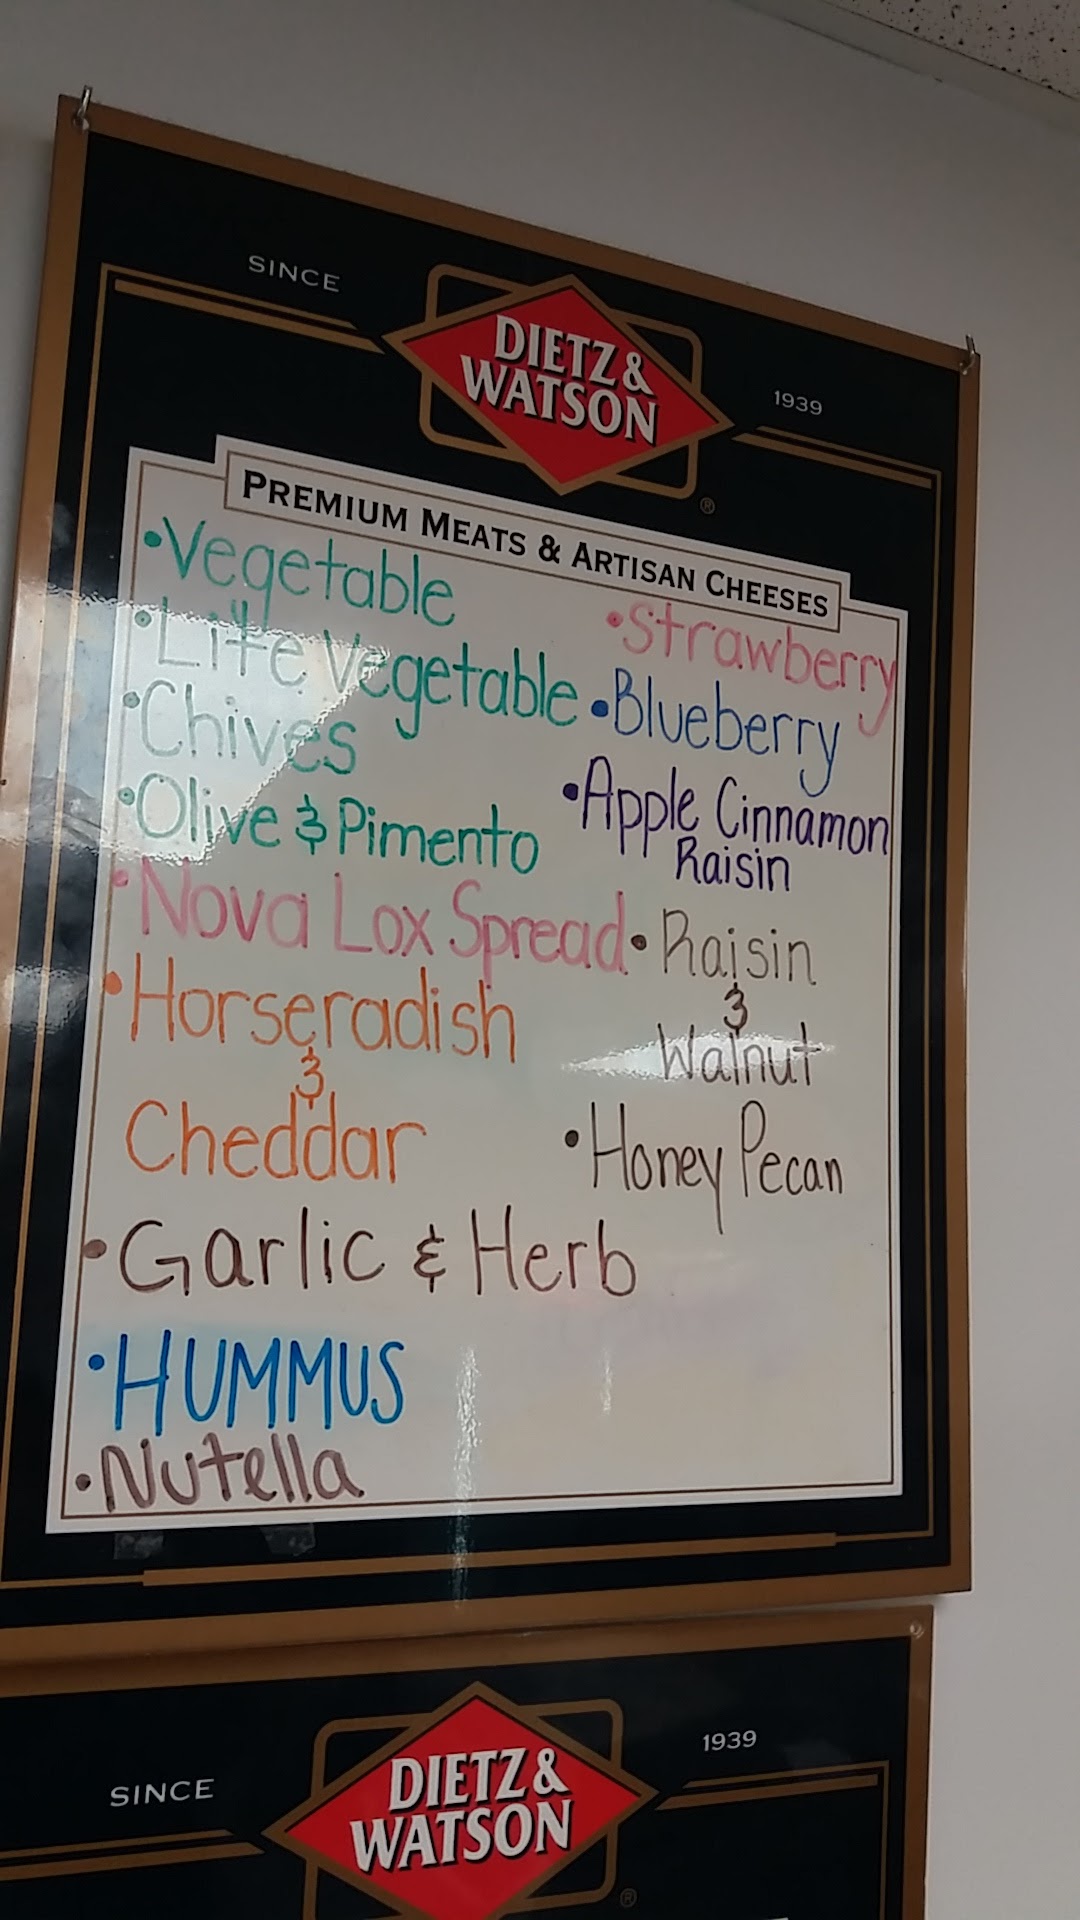 SINCE
DIETZ &
WATSON
1939
®
PREMIUM MEATS & ARTISAN CHEESES
•Vegetable
•Lite Vegetable
•Chives
•Olive & Pimento
•Nova Lox Spread
•Horseradish
&
Cheddar
•Garlic & Herb
•HUMMUS
•Nutella
•Strawberry
•Blueberry
•Apple Cinnamon
Raisin
•Raisin
&
Walnut
•Honey Pecan
SINCE
DIETZ &
WATSON
1939
®